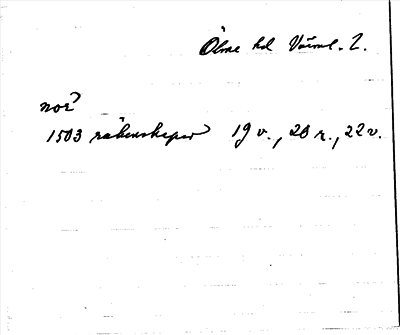 Ölme hd Värml. l.
nor?
1503 räkenskaper 19 v., 20 r., 22 v.